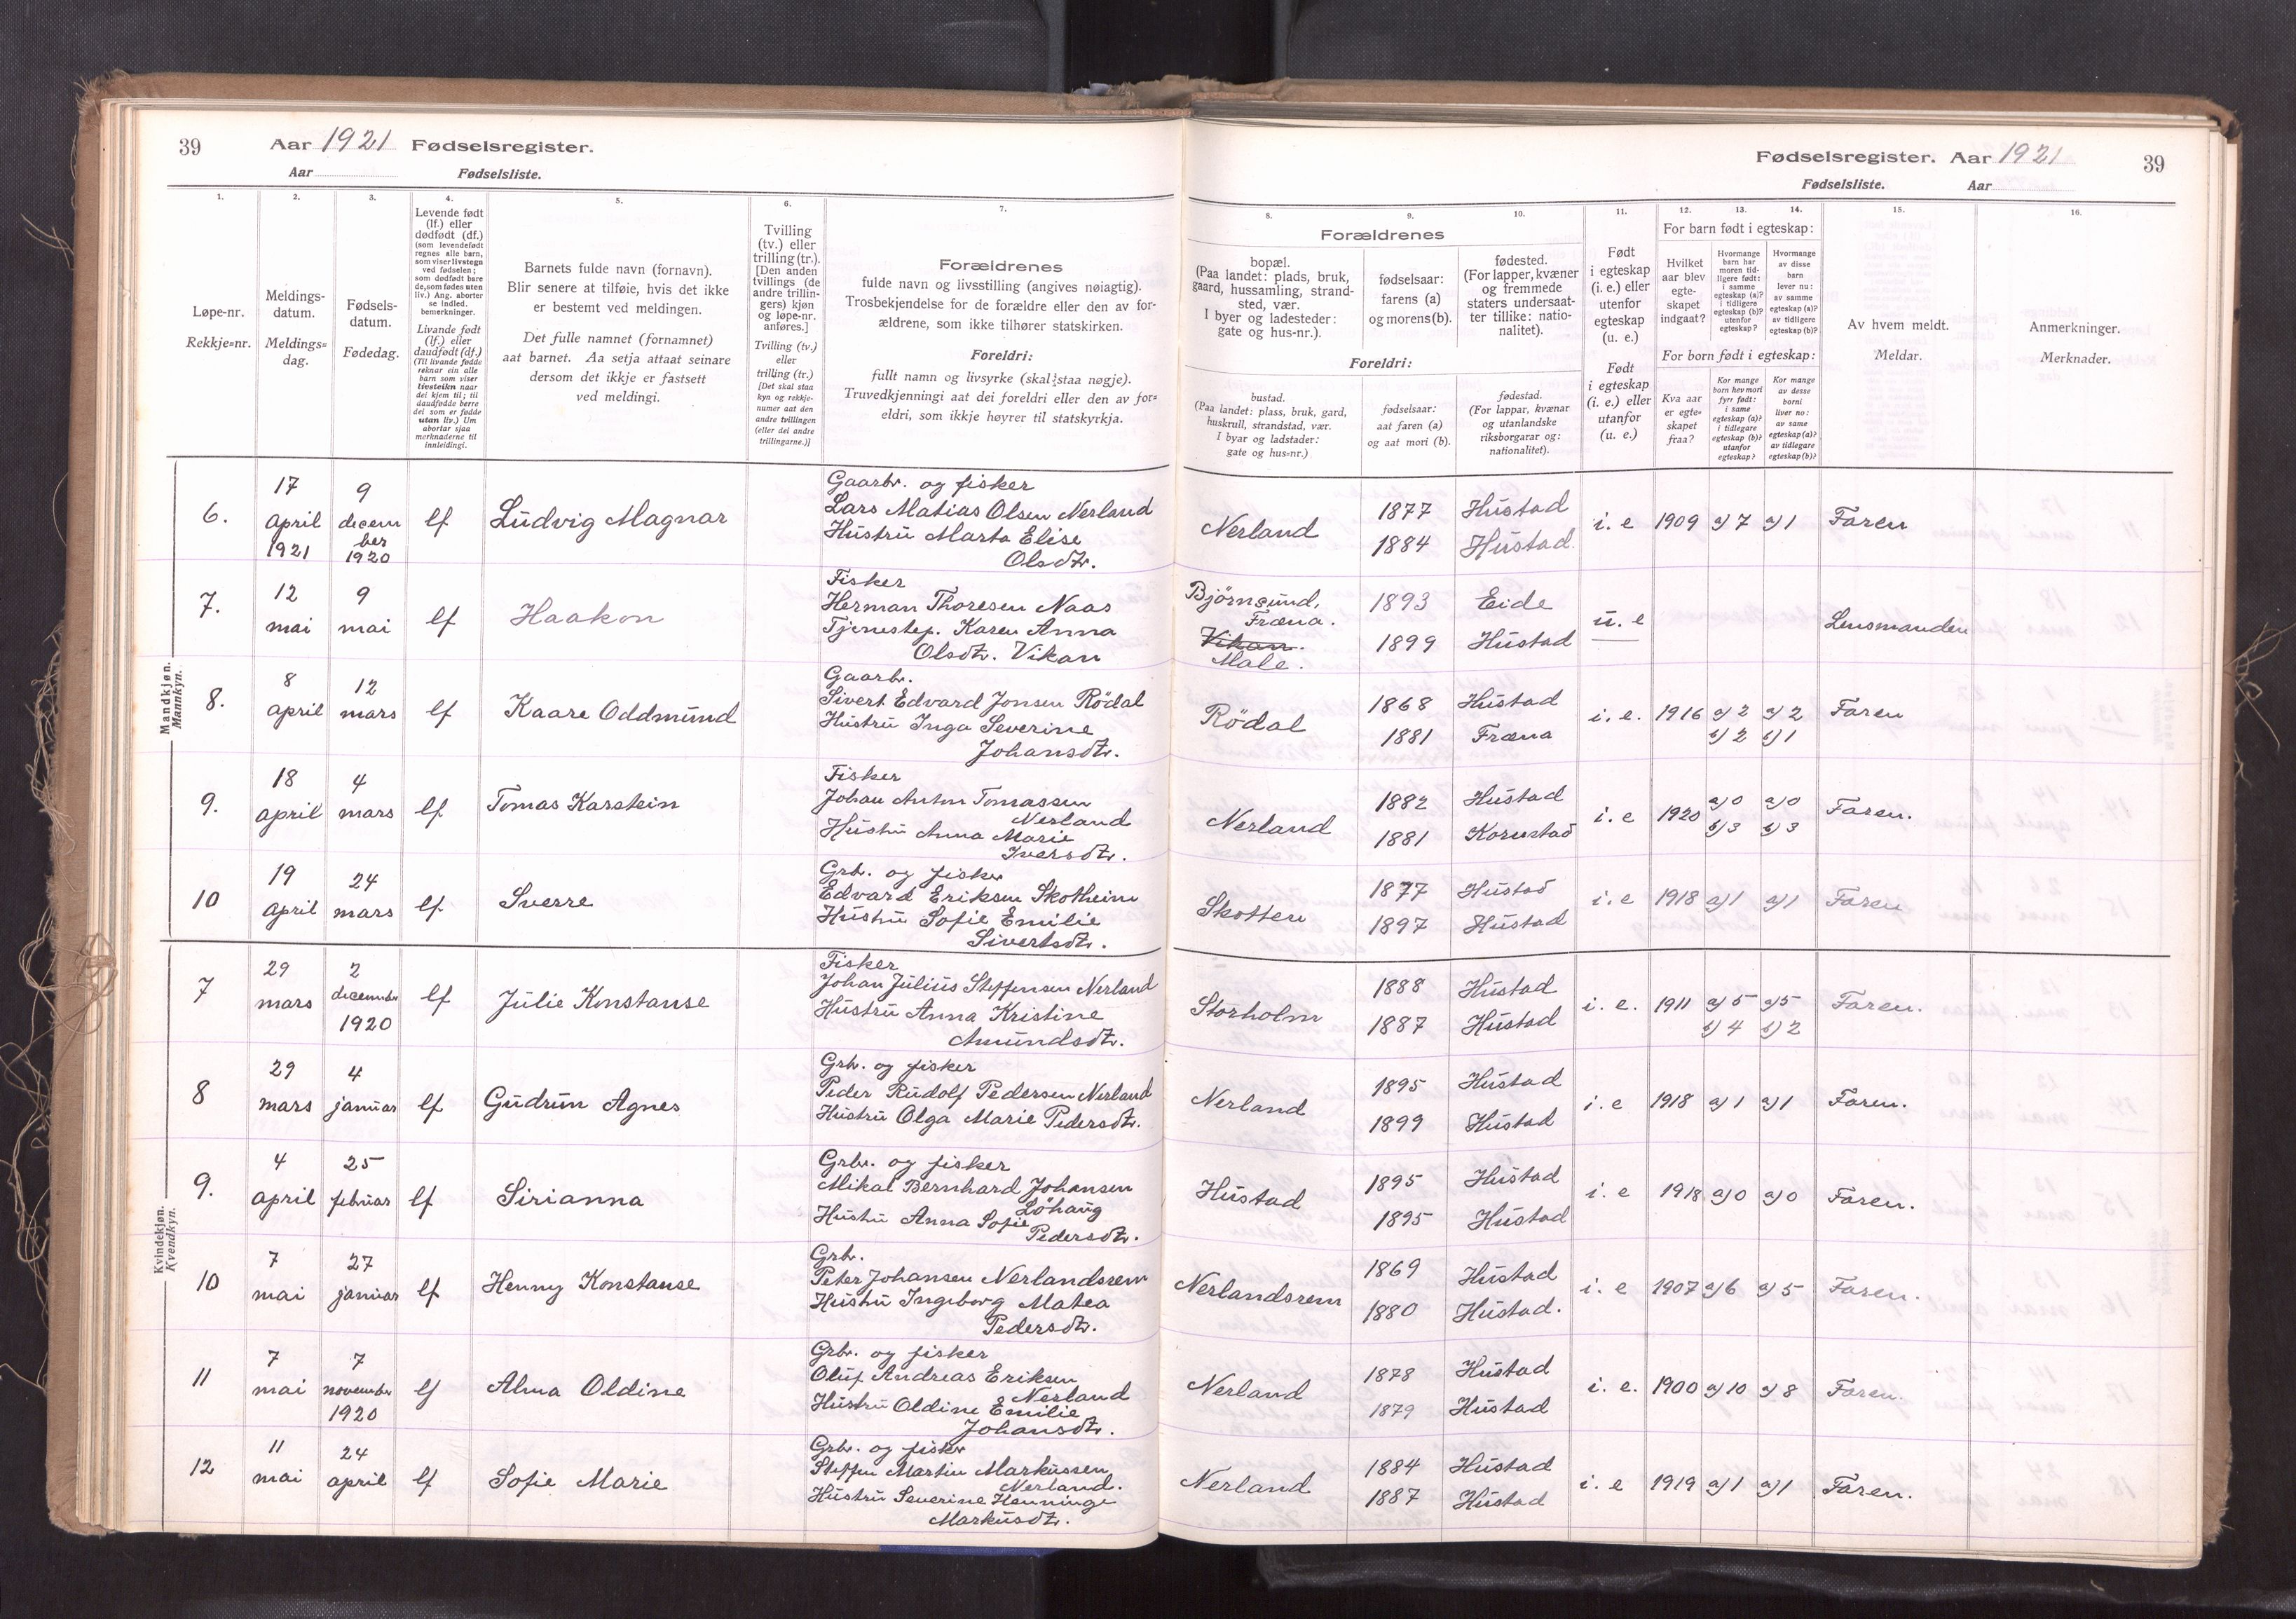 39 Aar 1921 Fødselsregister.
Aar Fødselsliste.
Fødselsregister. Aar 1921 39
Fødselsliste. Aar
1.
Løpe-nr.
Rekkje=nr.
2.
Meldings-
datum.
Meldings=
dag.
3.
Fødsels-
datum.
Fødedag.
4.
Levende født
(lf.) eller
dødfødt (df.)
(som levendefødt
regnes alle barn,
som viser livstegn
ved fødselen;
som dødfødt bare
de, som fødes uten
liv.) Ang. aborter
se indled.
bemerkninger.
Livande født
(lf.) eller
daudfødt (df.)
(Til livande fødde
reknar ein alle
barn som viser
livsteikn naar
dei kjem til; til
daudfødde berre
dei som er fødde
utan liv.) Um
abortar sjaa
merknaderne til
innleidingi.
5.
Barnets fulde navn (fornavn).
Blir senere at tilføie, hvis det ikke
er bestemt ved meldingen.
Det fulle namnet (fornamnet)
aat barnet. Aa setja attaat seinare
dersom det ikkje er fastsett
ved meldingi.
6.
Tvilling
(tv.) eller
trilling (tr.).
[Den anden
tvillings (de
andre trillin-
gers) kjøn
og løpe-nr.
anføres.]
Tvilling (tv.)
eller
trilling (tr.)
[Det skal staa
kyn og rekkje-
numer aat den
andre tvillingen
(eller dei andre
trillingarne.)]
7.
Forældrenes
fulde navn og livsstilling (angives nøiagtig).
Trosbekjendelse for de forældre eller den av for-
ældrene, som ikke tilhører statskirken.
Foreldri:
fullt namn og livsyrke (skal staa nøgje).
Truvedkjenningi aat dei foreldri eller den av for=
eldri, som ikkje høyrer til statskyrkja.
8.
Forældrenes
bopæl.
(Paa landet: plads, bruk,
gaard, hussamling, strand-
sted, vær.
I byer og ladesteder:
gate og hus-nr.).
Foreldri:
bustad.
(Paa landet: plass, bruk, gard,
huskrull, strandstad, vær.
I byar og ladstader:
gate og hus=nr.)
9.
fødselsaar:
farens (a)
og morens (b).
fødselsaar:
aat faren (a)
og aat mori (b).
10.
fødested.
(For lapper, kvæner
og fremmede
staters undersaat-
ter tillike: natio-
nalitet).
fødestad.
(For lappar, kvænar
og utanlandske
riksborgarar og:
nationalitet).
11.
Født
i egteskap
(i. e.) eller
utenfor
egteskap
(u. e.)
Født
i egteskap
(i. e.) eller
utanfor
(u. e.)
12. 13. 14.
For barn født i egteskap:
Hvilket
aar blev
egte-
skapet
indgaat?
Hvormange
barn har
moren tid-
ligere født:
i samme
egteskap (a)?
i tidligere
egteskap (b)?
utenfor
egteskap?
Hvormange
av disse
barn
lever nu:
av samme
egteskap (a)?
av tidligere
egteskap (b)?
For born født i egteskap:
Kva aar
er egte=
skapet
fraa?
Kor mange
born hev mori
fyrr født:
i same
egteskap (a)?
i tidlegare
egteskap (b)?
utanfor
egteskap?
Kor mange
av desse
borni
liver no:
av same
egteskap (a)?
av tidlegare
egteskap (b)?
15.
Av hvem meldt.
Meldar.
16.
Anmerkninger.
Merknader.
Mandkjøn.
Mannkyn.
6. 17 april 1921 9 december 1920 lf Ludvig Magnar
Gaarbr. og fisker
Lars Matias Olsen Nerland
Hustru Marta Elise
Olsdtr.
Nerland 1877 Hustad i. e 1909 a) 7 a) 1 Faren
1884 Hustad.
7. 12 mai 9 mai lf Haakon
Fisker
Herman Thoresen Naas
Tjenestep. Karen Anna
Olsdtr. Vikan
Björnsund, 1893 Eide u. e Lensmanden
Fræna.
Vikan. 1899 Hustad
Male.
8. 8 april 12 mars lf Kaare Oddmund
Gaarbr.
Sivert Edvard Jonsen Rödal
Hustru Inga Severine
Johansdtr.
Rödal 1868 Hustad i. e. 1916 a) 2 a) 2 Faren
1881 Fræna b) 2 b) 1
9. 18 april 4 mars lf Tomas Karstein
Fisker
Johan Anton Tomassen
Nerland
Hustru Anna Marie
Iversdtr.
Nerland 1882 Hustad i. e 1920 a) 0 a) 0 Faren.
1881 Kornstad b) 3 b) 3
10 19 april 24 mars lf Sverre
Grb. og fisker
Edvard Eriksen Skotheim
Hustru Sofie Emilie
Sivertsdtr.
Skotten 1877 Hustad i. e 1918 a) 1 a) 1 Faren
1897 Hustad
Kvindekjøn.
Kvendkyn.
7 29 mars 2 december 1920 lf Julie Konstanse
Fisker
Johan Julius Steffensen Nerland
Hustru Anna Kristine
Amundsdtr.
Storholm 1888 Hustad i. e. 1911 a) 5 a) 5 Faren.
1887 Hustad b) 4 b) 2
8 29 mars 4 januar lf Gudrun Agnes
Grb. og fisker
Peder Rudolf Pedersen Nerland
Hustru Olga Marie Pedersdtr.
Nerland 1895 Hustad i. e 1918 a) 1 a) 1 Faren.
1899 Hustad
9. 4 april 25 februar lf Sirianna
Grbr. og fisker
Mikal Bernhard Johansen
Löhaug
Hustru Anna Sofie
Pedersdtr.
Hustad 1895 Hustad i. e 1918 a) 0 a) 0 Faren.
1895 Hustad
10 7 mai 27 januar lf Henny Konstanse
Grbr.
Peter Johansen Nerlandsrem
Hustru Ingeborg Matea
Pedersdtr.
Nerlandsrem 1869 Hustad i. e 1907 a) 6 a) 5 Faren.
1880 Hustad.
11 7 mai 7 november 1920 lf Alma Oldine
Grbr. og fisker
Oluf Andreas Eriksen
Nerland
Hustru Oldine Emilie
Johansdtr.
Nerland 1878 Hustad i. e. 1900 a) 10 a) 8 Faren.
1879 Hustad
12 11 mai 24 april lf Sofie Marie
Grbr. og fisker
Steffen Martin Markussen
Nerland.
Hustru Severine Henninge
Markusdtr.
Nerland 1884 Hustad i. e 1919 a) 1 a) 1 Faren.
1887 Hustad